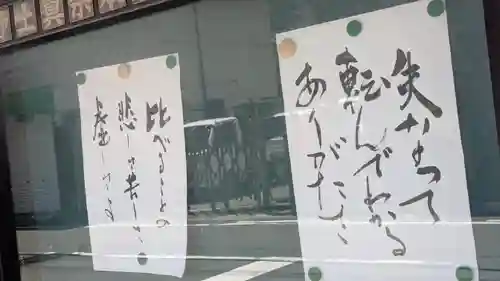 失なって
転んでわかる
ありがたさ
比べることの
悲しさ苦しさ
虚しさよ